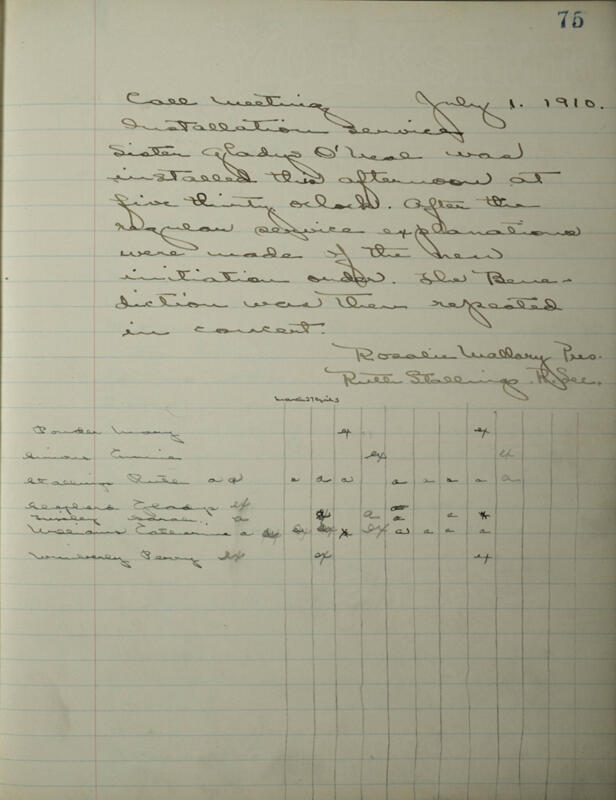 75
Call Meeting July 1. 1910.
Installation Service
Sister Gladys O'Neal was
installed this afternoon at
five thirty oclock. After the
regular service explanations
were made of the new
initiation order. The Bene-
diction was then repeated
in concert.
Rosalie Mallary Pres.
Ruth Stallings. R. Sec.
Powder Mary ex ex
ex ex
Stallings Ruth a a a a a a a a a a a
ex
a a a a
Williams Catherine a ex ex ex ex a a a a
Wimberly Penny ex ex ex